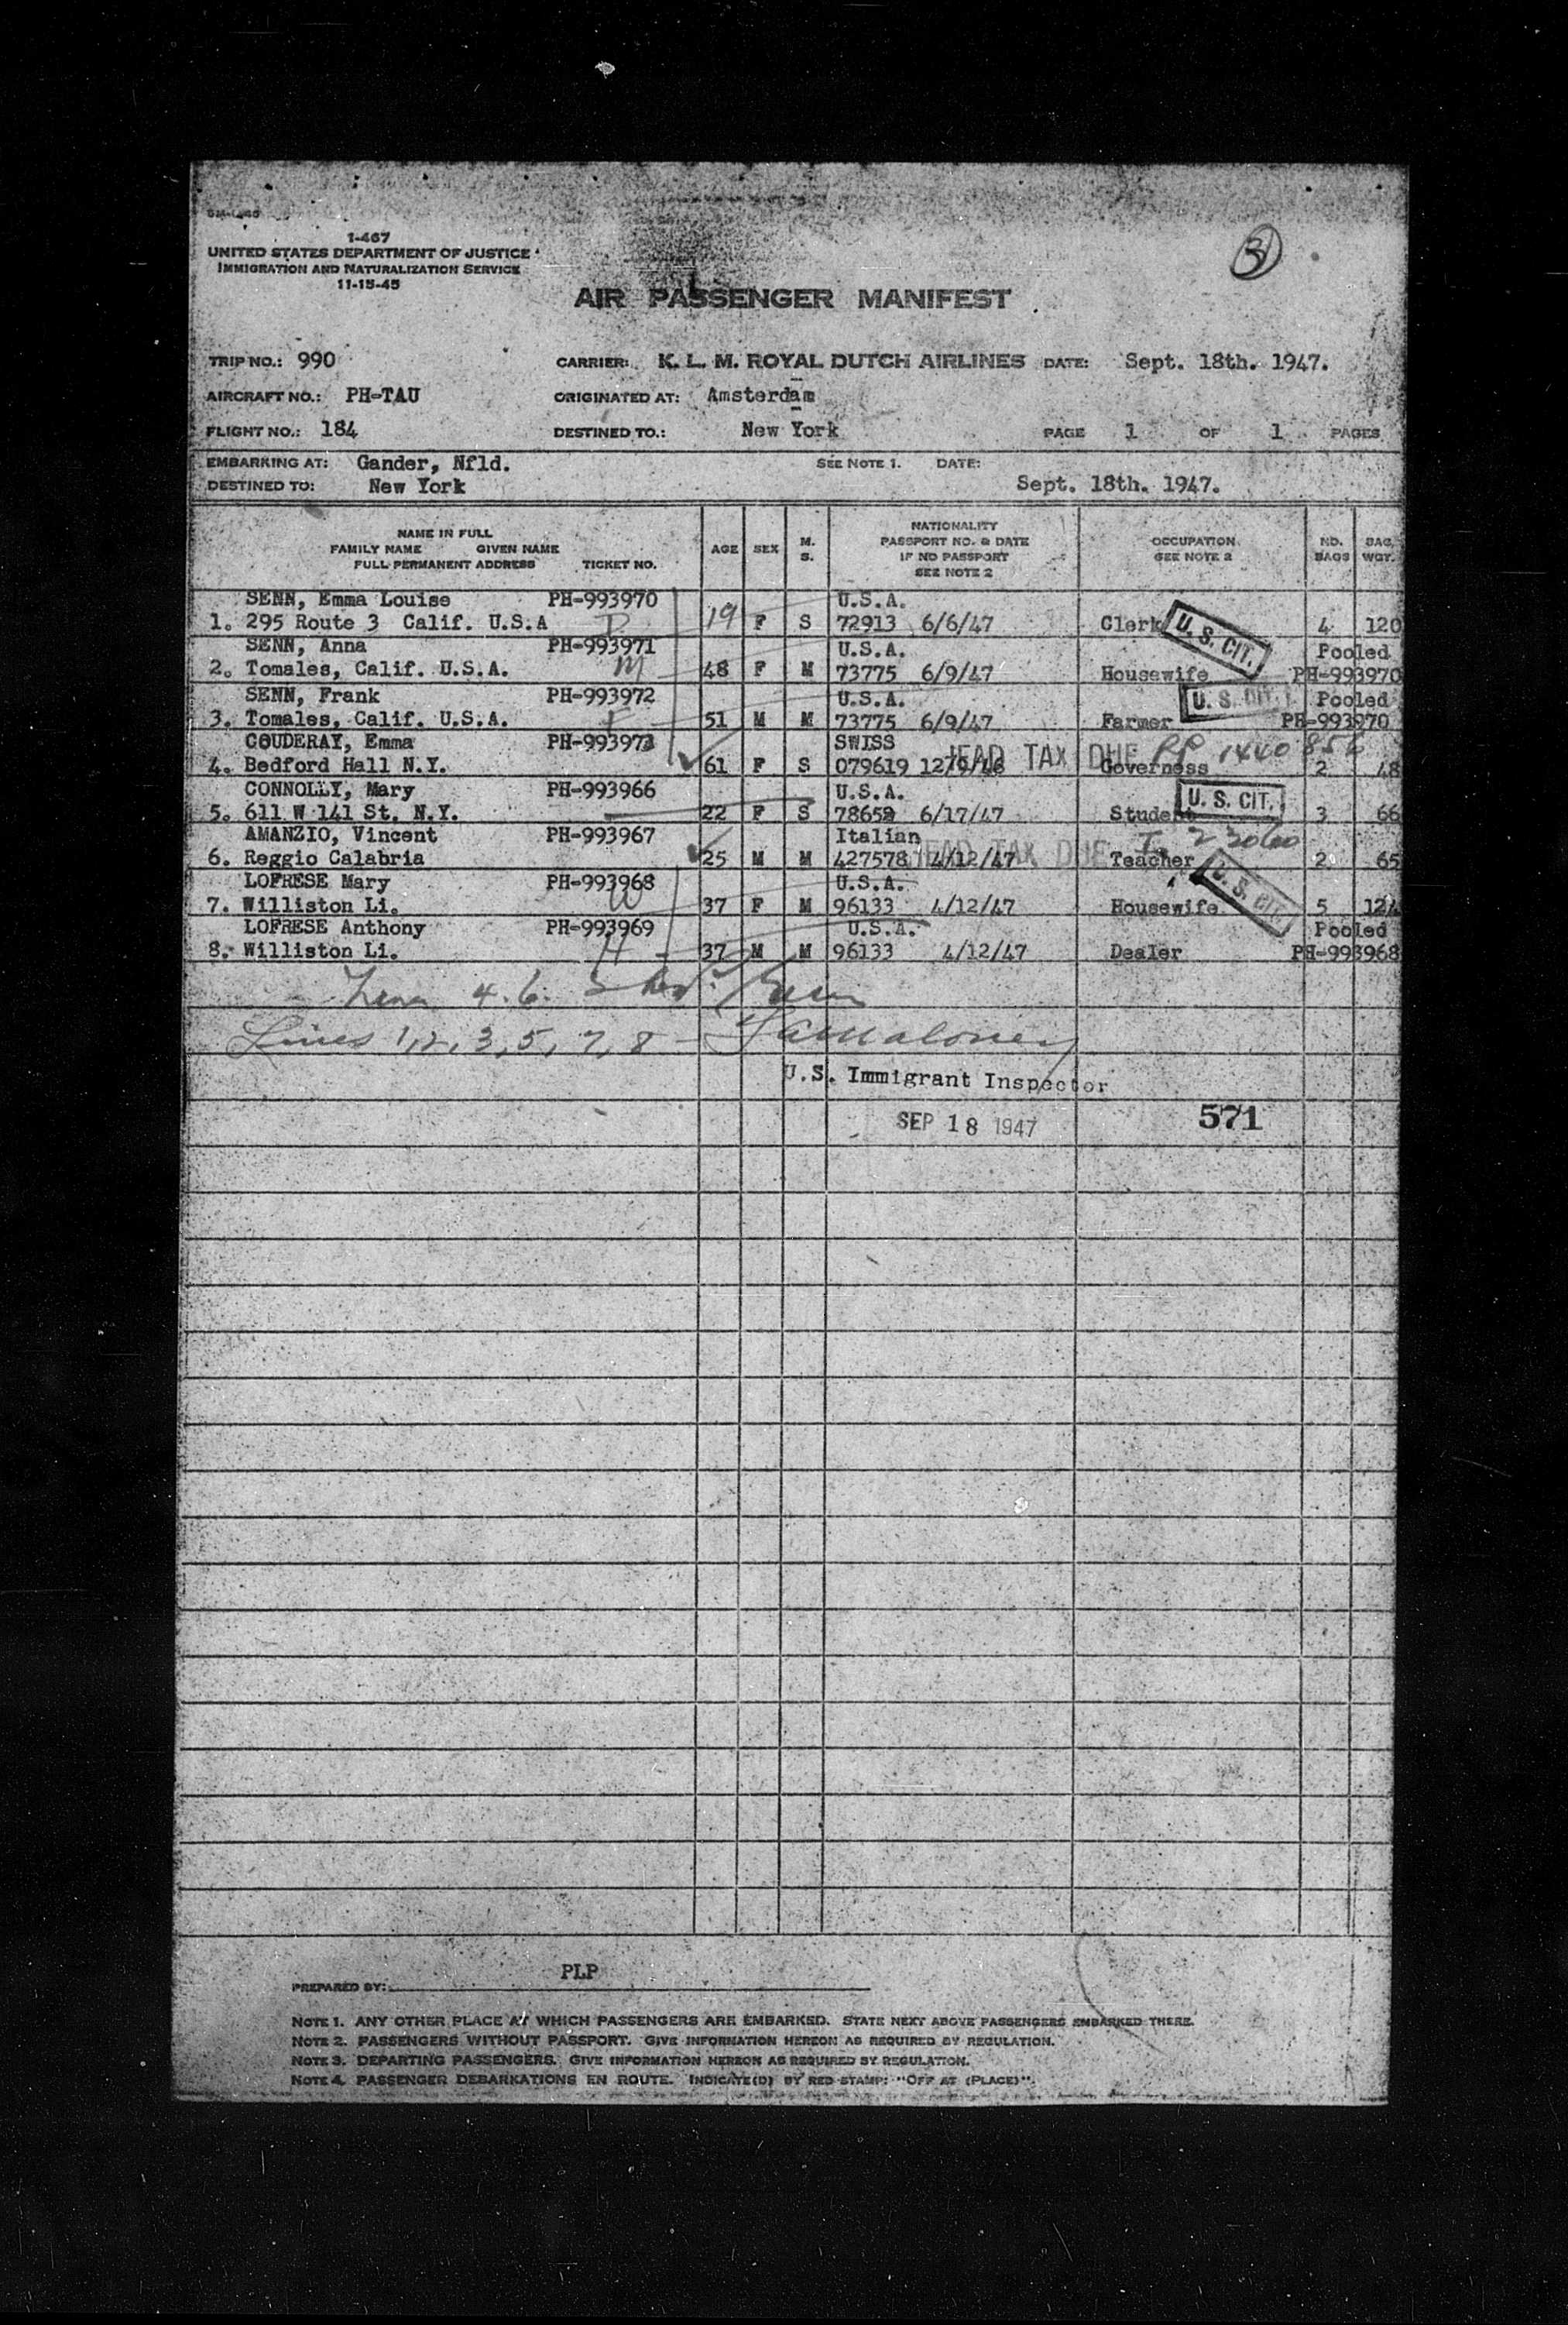 1-467
UNITED STATES DEPARTMENT OF JUSTICE
IMMIGRATION AND NATURALIZATION SERVICE
11-15-45
3
AIR PASSENGER MANIFEST
TRIP NO.: 990 CARRIER: K. L. M. ROYAL DUTCH AIRLINES DATE: Sept. 18th. 1947.
AIRCRAFT NO.: PH-TAU ORIGINATED AT: Amsterdam
FLIGHT NO.: 184 DESTINED TO.: New York PAGE 1 OF 1 PAGES
EMBARKING AT: Gander, Nfld. SEE NOTE 1. DATE:
DESTINED TO: New York Sept. 18th. 1947.
NAME IN FULL
FAMILY NAME GIVEN NAME
FULL PERMANENT ADDRESS TICKET NO.
AGE SEX M. S.
NATIONALITY
PASSPORT NO. & DATE
IF NO PASSPORT
SEE NOTE 2
OCCUPATION
SEE NOTE 2
NO. BAGS
BAG. WGT.
SENN, Emma Louise PH-993970 U.S.A.
1. 295 Route 3 Calif. U.S.A 19 F S 72913 6/6/47 Clerk U. S. CIT. 4 120
SENN, Anna PH-993971 U.S.A. Pooled
2. Tomales, Calif. U.S.A. M 48 F M 73775 6/9/47 Housewife PH-993970
SENN, Frank PH-993972 U.S.A. U. S. CIT. Pooled
3. Tomales, Calif. U.S.A. 51 M M 73775 6/9/47 Farmer PH-993970
COUDERAY, Emma PH-993973 SWISS HEAD TAX DUE RP 1440856
4. Bedford Hall N.Y. 61 F S 079619 Governess 2 48
CONNOLLY, Mary PH-993966 U.S.A. U. S. CIT.
5. 611 W 141 St. N.Y. 22 F S 78652 6/17/47 Student 3 66
AMANZIO, Vincent PH-993967 Italian HEAD TAX DUE
6. Reggio Calabria 25 M M 427578 4/12/47 Teacher 2 65
LOFRESE Mary PH-993968 U.S.A. U. S. CIT.
7. Williston Li. W 37 F M 96133 4/12/47 Housewife 5 124
LOFRESE Anthony PH-993969 U.S.A. Pooled
8. Williston Li. H 37 M M 96133 4/12/47 Dealer PH-993968
4. 6.
Lines 1, 2, 3, 5, 7, 8 - Maloney
U.S. Immigrant Inspector
SEP 18 1947 571
PREPARED BY: PLP
NOTE 1. ANY OTHER PLACE AT WHICH PASSENGERS ARE EMBARKED. STATE NEXT ABOVE PASSENGERS EMBARKED THERE.
NOTE 2. PASSENGERS WITHOUT PASSPORT. GIVE INFORMATION HEREON AS REQUIRED BY REGULATION.
NOTE 3. DEPARTING PASSENGERS. GIVE INFORMATION HEREON AS REQUIRED BY REGULATION.
NOTE 4. PASSENGER DEBARKATIONS EN ROUTE. INDICATE(D) BY RED STAMP: "OFF AT (PLACE)".